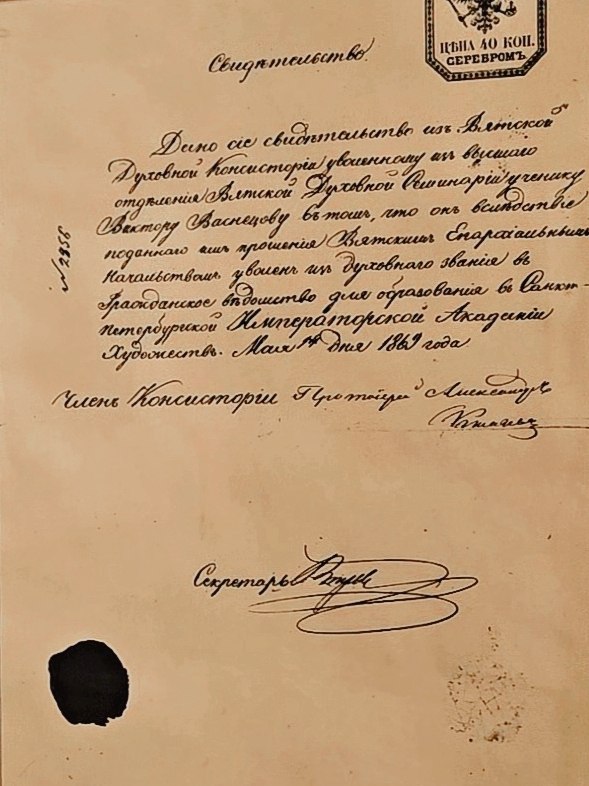 ЦѢНА 40 КОП.
СЕРЕБРОМЪ
Свидѣтельство.
Дано сіе свидѣтельство изъ Вятской
Духовной Консисторіи уволенному изъ высшаго
отдѣленія Вятской Духовной Семинаріи ученику
Виктору Васнецову въ томъ, что онъ вслѣдствіе
поданнаго имъ прошенія Вятскимъ Епархіальнымъ
Начальствомъ уволенъ изъ духовнаго званія въ
Гражданское вѣдомство для образованія въ Санкт-
петербургской Императорской Академіи
Художествъ. Мая дня 1869 года
Членъ Консисторіи Протоіерей Александръ
Секретарь